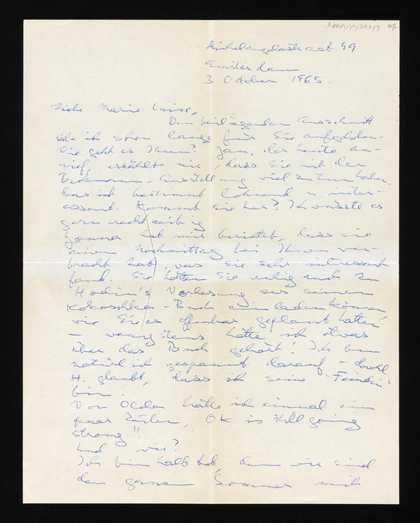 Michelangelostraat 99
Amsterdam
3 October 1965.
Liebe Marie Louise,
Den beiliegenden Ausschnitt
habe ich schon lange für Sie aufgehoben.
Wie geht es Ihnen? Jan, der heute
rief, erzählte mir, dass Sie mit der
Beckmann-Ausstellung viel zu tun haben.
Das ist bestimmt lohnend u. inter-
essant. Kommt sie her? Ich wüsste es
gern rechtzeitig
hat mir berichtet, dass sie
einen Nachmittag bei Ihnen ver-
bracht hat, was sie sehr interessant
fand. Sie hätten Sie ruhig auch zu
Hodin's Vorlesung aus seinem
Kokoschka-Buch einladen können,
wie Sie es offenbar geplant hatten
— wenigstens hätte ich etwas
über das Buch gehört! Ich bin
natürlich gespannt darauf,
H. glaubt, dass ich seine Feindin
bin.
Von hatte ich einmal ein
paar Zeilen, OK is still going
strong!!
Und wir?
Ich bin halb tot, denn wir sind
den ganzen Sommer mit